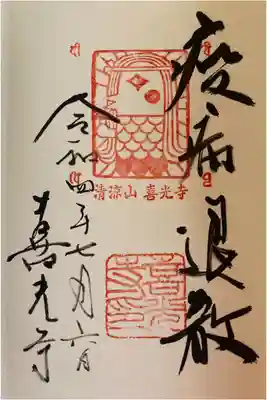 疫病退散
清涼山 喜光寺
令和四年七月六日
喜光寺